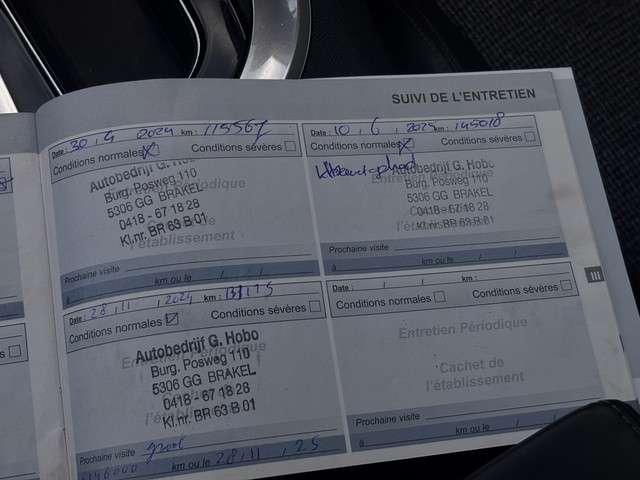 SUIVI DE L'ENTRETIEN
Date : 30 . 4 2024 km : 115567
Conditions normales Conditions sévères
Entretien Périodique
Autobedrijf G. Hobo
Burg. Posweg 110
5306 GG BRAKEL
0418 - 67 18 28
Kl.nr. BR 63 B 01
l'établissement
Prochaine visite
à km ou le / /
Date : 10 . 6 . 2025 km : 145018
Conditions normales Conditions sévères
Entretien Périodique
Autobedrijf G. Hobo
Burg. Posweg 110
5306 GG BRAKEL
0418 - 67 18 28
Kl.nr. BR 63 B 01
l'établissement
Prochaine visite
à km ou le / /
Date : 28 . 11 . 2024 km :
Conditions normales Conditions sévères
Entretien Périodique
Autobedrijf G. Hobo
Burg. Posweg 110
5306 GG BRAKEL
0418 - 67 18 28
Kl.nr. BR 63 B 01
l'établissement
Prochaine visite groot
146000 km ou le 28 . 11 . 25
Date : / / km :
Conditions normales Conditions sévères
Entretien Périodique
Cachet de
l'établissement
Prochaine visite
à km ou le / /
III